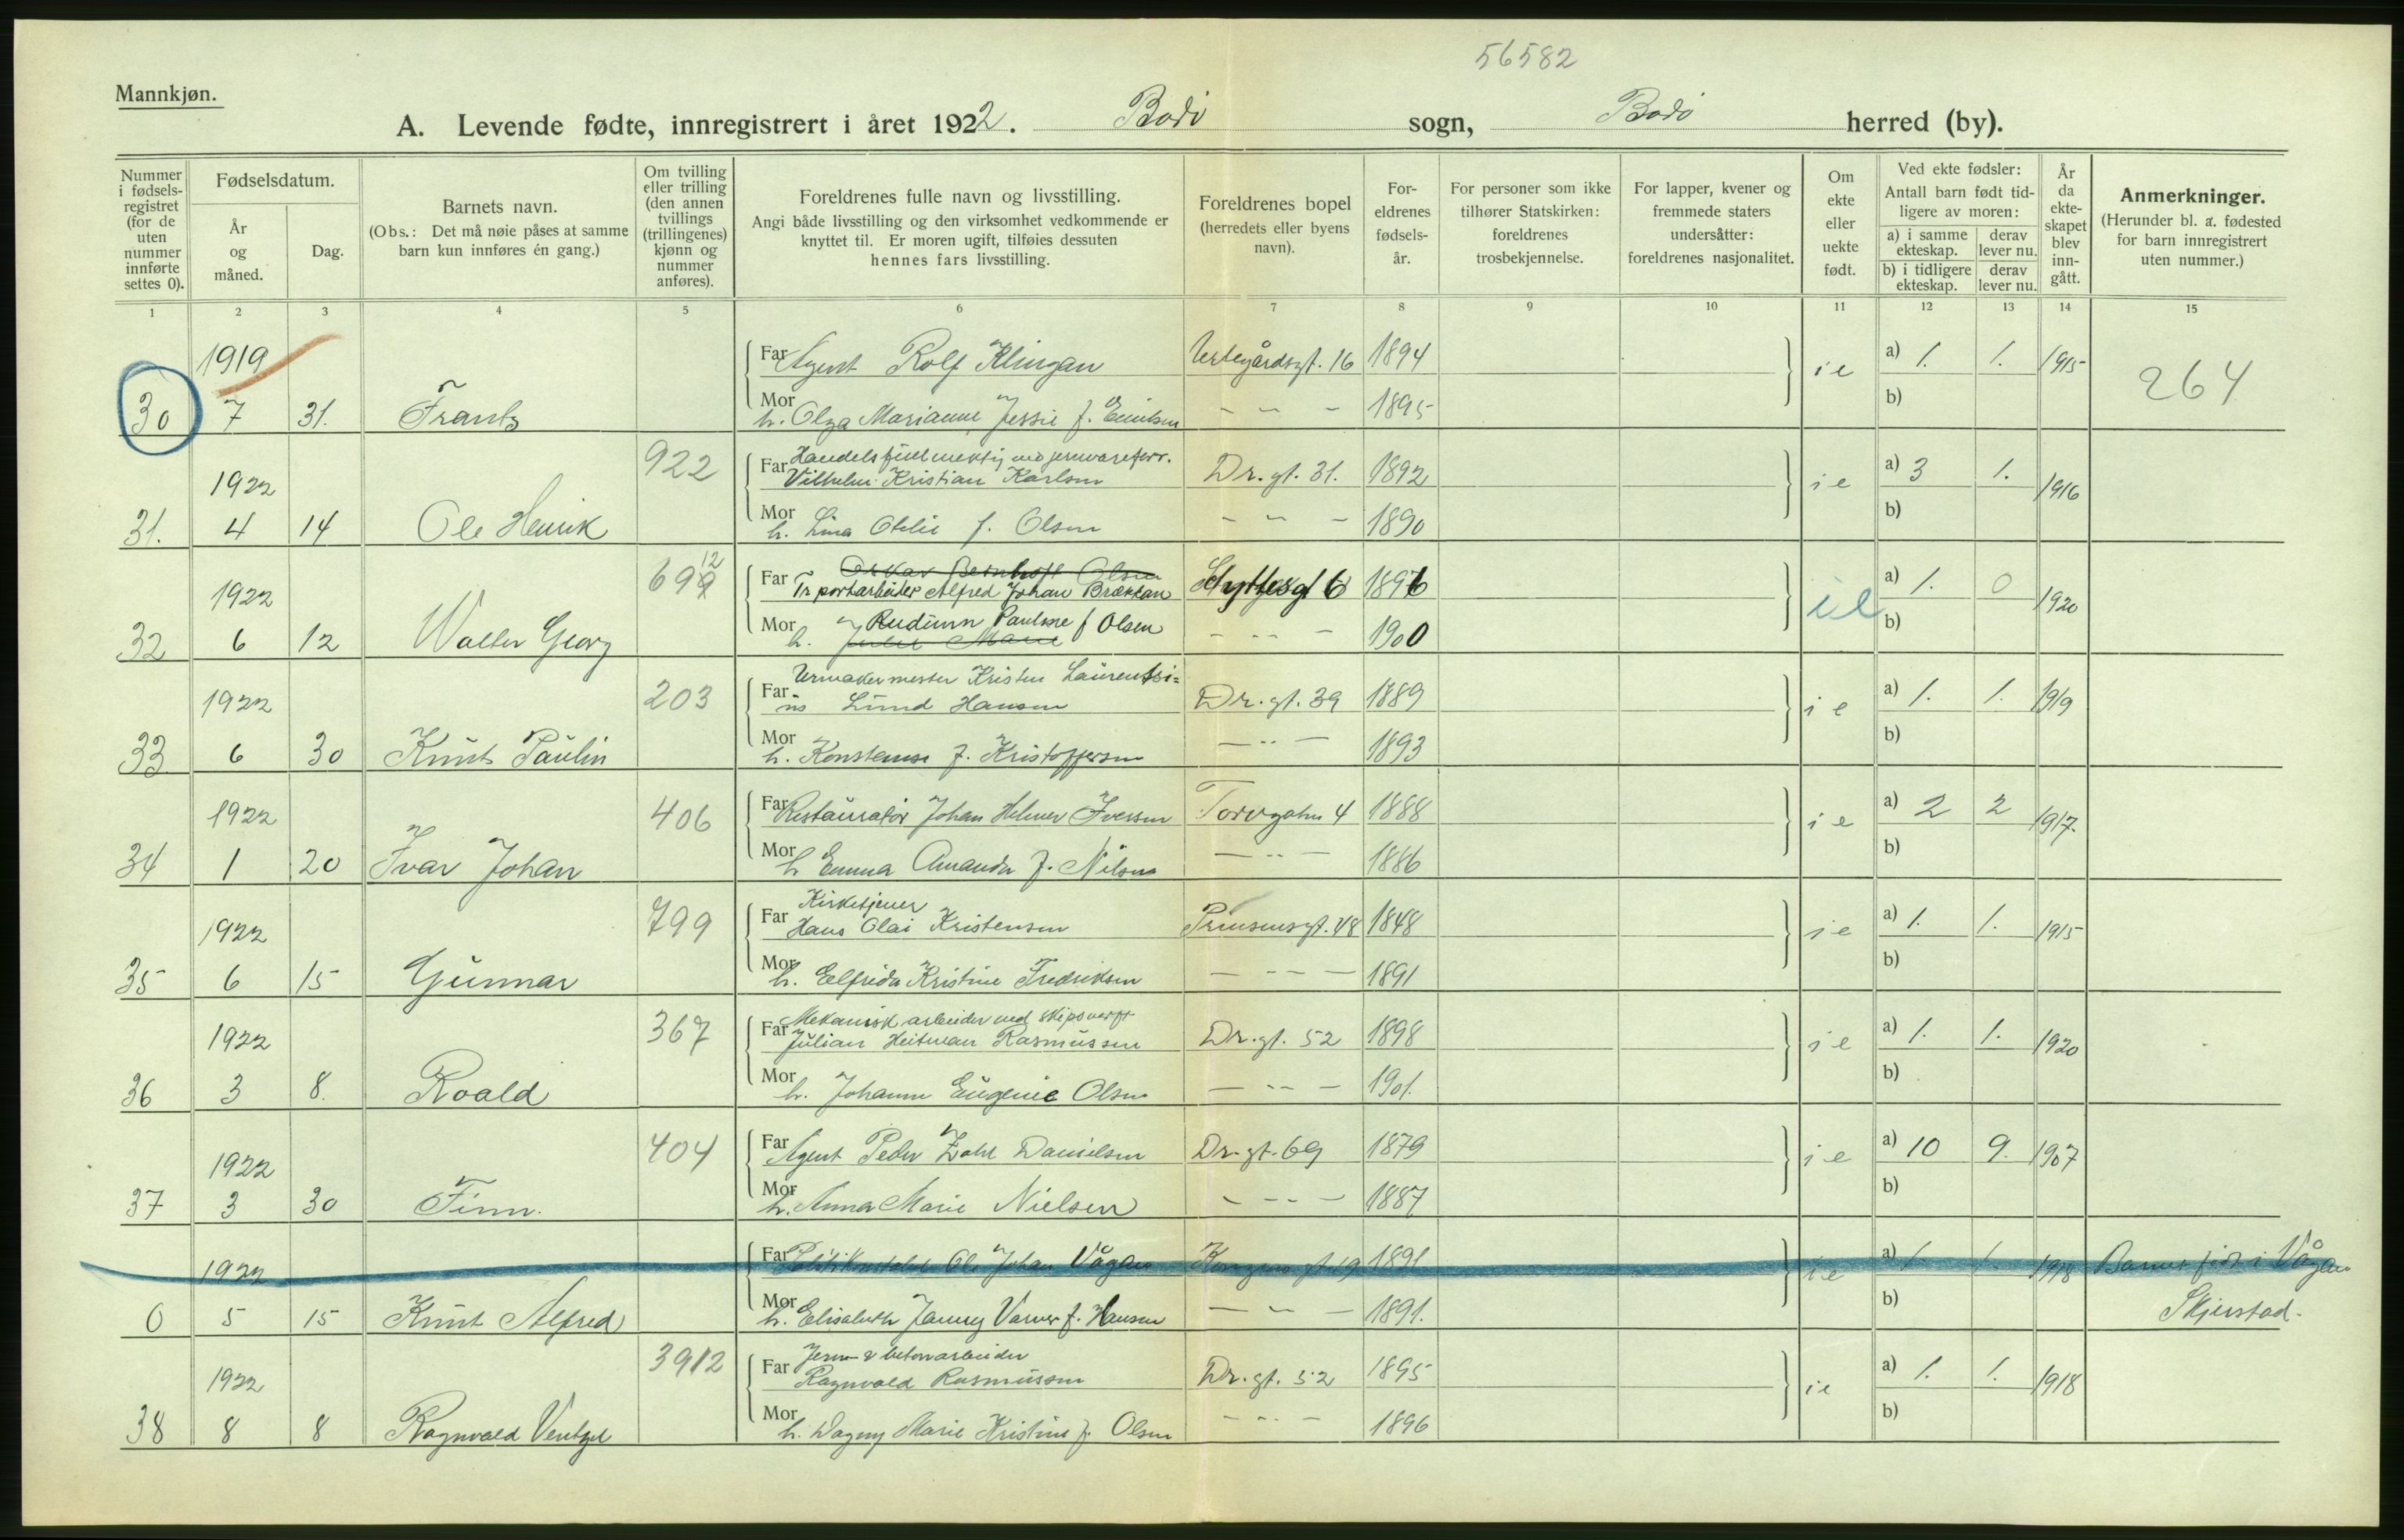 56582
Mannkjøn.
A. Levende fødte, innregistrert i året 1922. Bodø sogn, Bodø herred (by).
Nummer i fødsels-registret (for de uten nummer innførte settes 0).
Fødselsdatum.
År og måned.
Dag.
Barnets navn.
(Obs.: Det må nøie påses at samme barn kun innføres én gang.)
Om tvilling eller trilling (den annen tvillings (trillingenes) kjønn og nummer anføres).
Foreldrenes fulle navn og livsstilling.
Angi både livsstilling og den virksomhet vedkommende er knyttet til. Er moren ugift, tilføies dessuten hennes fars livsstilling.
Foreldrenes bopel (herredets eller byens navn).
For-eldrenes fødsels-år.
For personer som ikke tilhører Statskirken: foreldrenes trosbekjennelse.
For lapper, kvener og fremmede staters undersåtter: foreldrenes nasjonalitet.
Om ekte eller uekte født.
Ved ekte fødsler:
Antall barn født tid-ligere av moren:
a) i samme ekteskap.
derav lever nu.
b) i tidligere ekteskap.
derav lever nu.
År da ekte-skapet blev inn-gått.
Anmerkninger.
(Herunder bl. a. fødested for barn innregistrert uten nummer.)
1 2 3 4 5 6 7 8 9 10 11 12 13 14 15
1919 Far Agent Rolf Klingan 16 1894 i e a) 1. 1. 1915 264
30 7 31. Frantz Mor h. Olga Marianne Jessie f. - " - 1895 b)
922 Far Handelsfuldmektig ved jernvareforr.
1922 Vilhelm Kristian Karlsen Dr. gt. 31. 1892 i e a) 3 1. 1916
31. 4 14 Ole Henrik Mor h. Lina Otelie f. Olsen - " - 1890 b)
69912 Oskar Bernhoft Olsen
1922 Far Tr portarbeider Alfred Johan Brækkan gt 6 1896 i e a) 1. 0 1920
32 6 12 Walter Georg Mor h. Rudiunn Pauline f Olsen - " - 1900 b)
203 Urmakermester Kristen Laurentsi=
1922 Far us Lund Hansen Dr. gt. 39 1889 i e a) 1. 1. 1919
33 6 30 Knut Paulin Mor h. Konstanse f. Kristoffersen - " - 1893 b)
1922 406 Far Restauratør Johan Helmer Iversen Torvgaten 4 1888 i e a) 2 2 1917.
34 1 20 Ivar Johan Mor h Emma Amanda f. Nilsen - " - 1886 b)
799 Kirketjener
1922 Far Hans Olai Kristensen Prinsensgt. 48 1848 i e a) 1. 1. 1915
35 6 15 Gunnar Mor h. Elfrida Kristine Fredriksen - " - 1891 b)
367 Mekanisk arbeider ved skipsverft
1922 Far Julian Heitman Rasmussen Dr. gt. 52 1898 i e a) 1. 1. 1920
36 3 8. Roald Mor h. Johanne Eugenie Olsen - " - 1901. b)
404 Far Agent Peder Zahl Danielsen Dr. gt. 69 1879 i e a) 10 9. 1907
1922
37 3 30 Finn. Mor h. Anna Marie Nielsen - " - 1887 b)
1922 Far Politikonstabel Ole Johan Vågan Kongens gt 19 1891 i e a) 1. 1. 1918 Barnet født i Vågan
0 5 15 Knut Alfred Mor h. Elisabeth Jenny Varver f. Hansen - " - 1891. b) Skjerstad.
3912 Jern & betonarbeider
1922 Far Ragnvald Rasmussen Dr. gt. 52 1895 i e a) 1. 1. 1918
38 8 8 Ragnvald Ventzel Mor h. Dagny Marie Kristine f. Olsen - " - 1896 b)